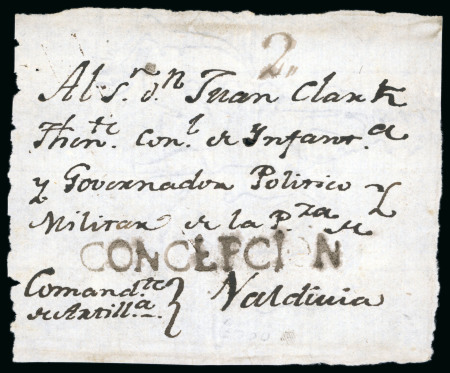 2„
Al S.r d.n Juan Clark
Then.te Con.l de Ynfant.a
y Governador Politico y
Militar de la P.za de
CONCEPCION
Comand.te
de Artill.a } Valdivia